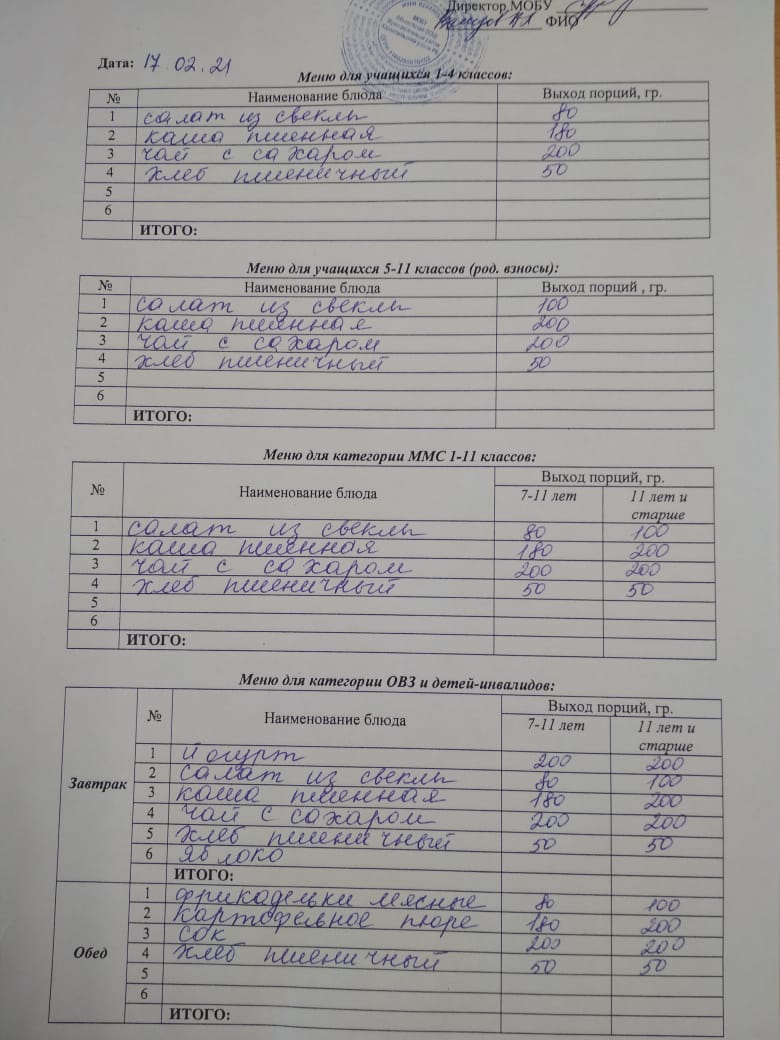 Директор МОБУ
ФИО
Дата: 17.02.21
Меню для учащихся 1-4 классов:
№ Наименование блюда Выход порций, гр.
1 салат из свеклы 80
2 каша пшенная 180
3 чай с сахаром 200
4 хлеб пшеничный 50
5
6
ИТОГО:
Меню для учащихся 5-11 классов (род. взносы):
№ Наименование блюда Выход порций , гр.
1 салат из свеклы 100
2 каша пшенная 200
3 чай с сахаром 200
4 хлеб пшеничный 50
5
6
ИТОГО:
Меню для категории ММС 1-11 классов:
№ Наименование блюда Выход порций, гр.
7-11 лет 11 лет и
старше
1 салат из свеклы 80 100
2 каша пшенная 180 200
3 чай с сахаром 200 200
4 хлеб пшеничный 50 50
5
6
ИТОГО:
Меню для категории ОВЗ и детей-инвалидов:
№ Наименование блюда Выход порций, гр.
7-11 лет 11 лет и
старше
Завтрак
1 йогурт 200 200
2 салат из свеклы 80 100
3 каша пшенная 180 200
4 чай с сахаром 200 200
5 хлеб пшеничный 50 50
6 яблоко
ИТОГО:
Обед
1 фрикадельки мясные 80 100
2 картофельное пюре 180 200
3 сок 200 200
4 хлеб пшеничный 50 50
5
6
ИТОГО: